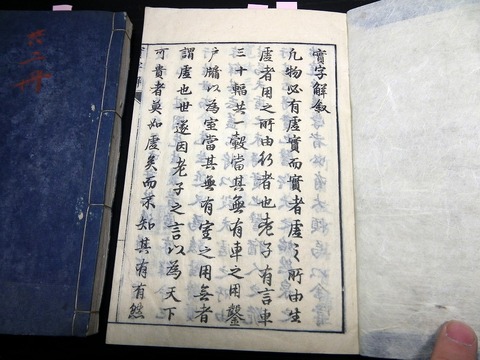 實字解叙
凡物必有虛實而實者虛之所由生
虛者用之所由行者也老子有言車
三十輻共一轂當其無有車之用鑿
戶牖以為室當其無有室之用無者
謂虛也世遂因老子之言以為天下
可貴者莫如虛矣而不知其有有然